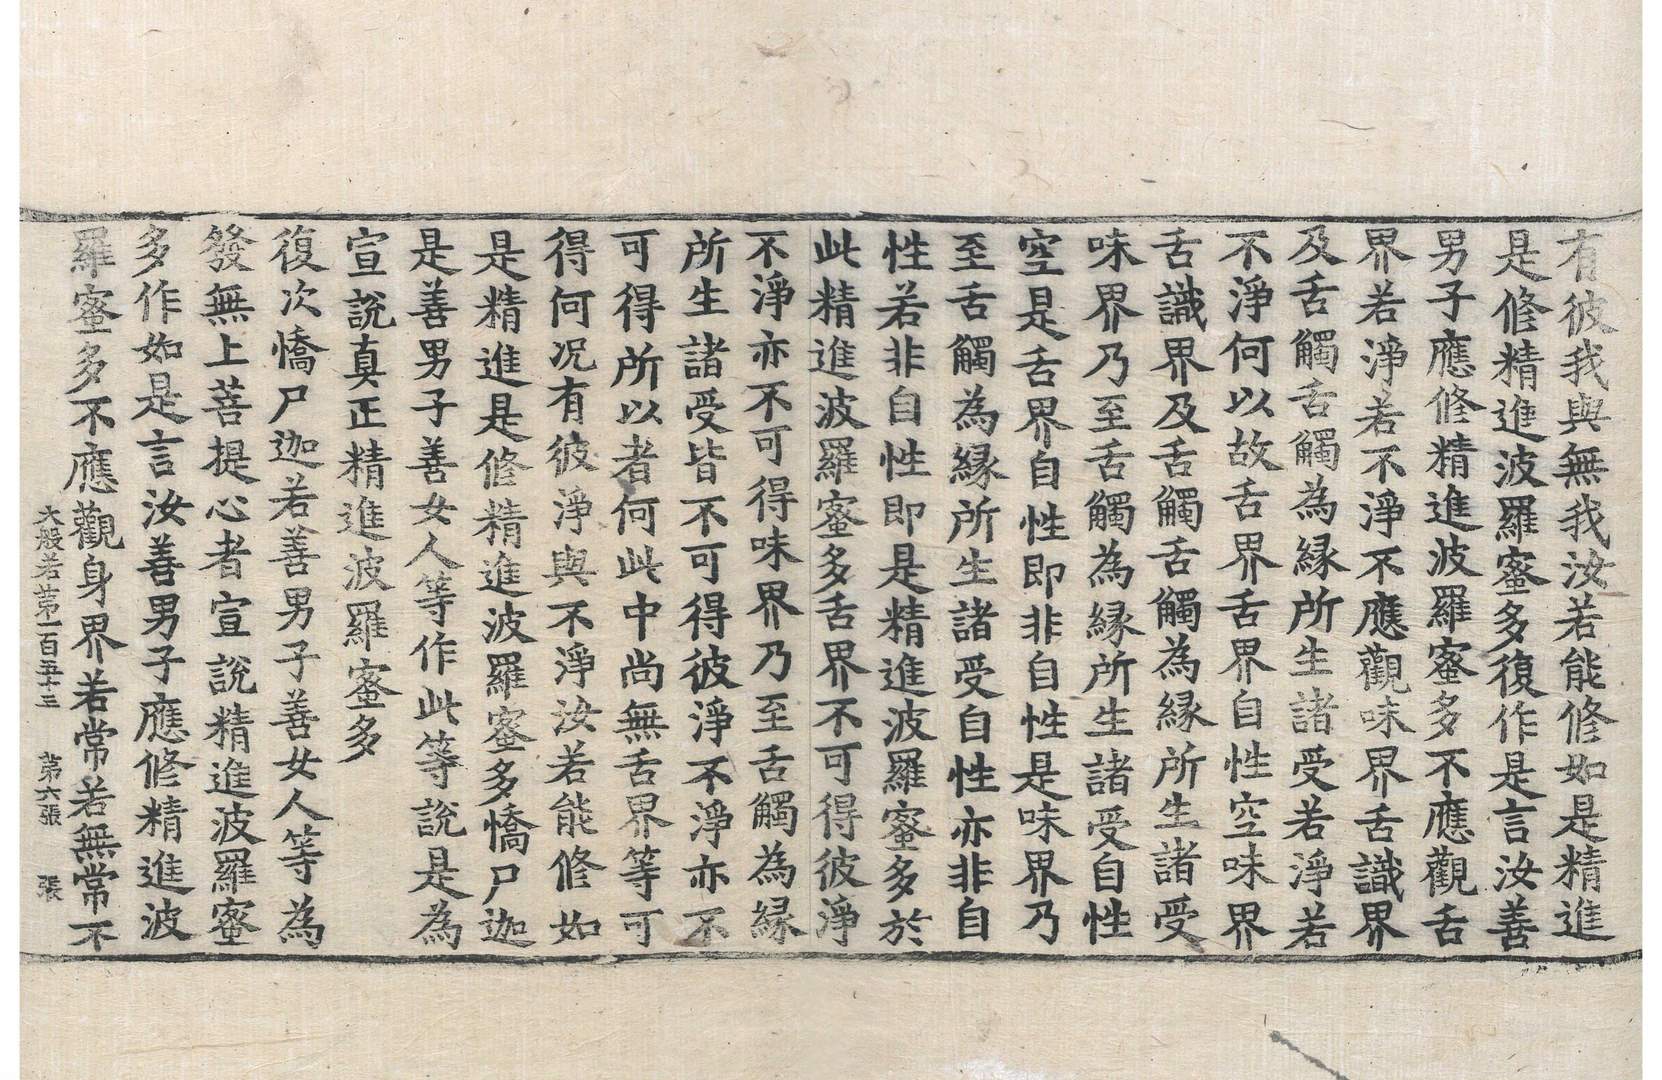 有彼我與無我汝若能修如是精進
是修精進波羅蜜多復作是言汝善
男子應修精進波羅蜜多不應觀舌
界若淨若不淨不應觀味界舌識界
及舌觸舌觸為緣所生諸受若淨若
不淨何以故舌界舌界自性空味界
舌識界及舌觸舌觸為緣所生諸受
味界乃至舌觸為緣所生諸受自性
空是舌界自性即非自性是味界乃
至舌觸為緣所生諸受自性亦非自
性若非自性即是精進波羅蜜多於
此精進波羅蜜多舌界不可得彼淨
不淨亦不可得味界乃至舌觸為緣
所生諸受皆不可得彼淨不淨亦不
可得所以者何此中尚無舌界等可
得何況有彼淨與不淨汝若能修如
是精進是修精進波羅蜜多憍尸迦
是善男子善女人等作此等說是為
宣說真正精進波羅蜜多
復次憍尸迦若善男子善女人等為
發無上菩提心者宣說精進波羅蜜
多作如是言汝善男子應修精進波
羅蜜多不應觀身界若常若無常不
大般若第一百五十三 第六張 張